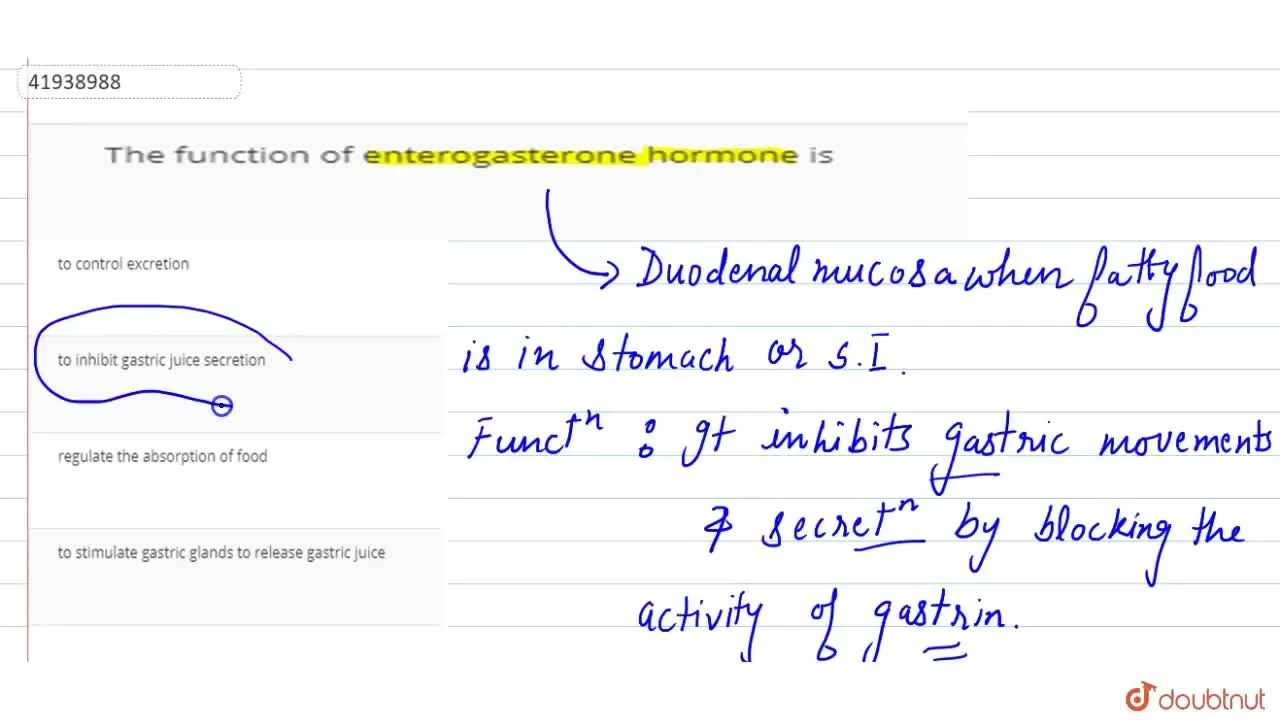 41938988
The function of enterogasterone hormone is
to control excretion
to inhibit gastric juice secretion
regulate the absorption of food
to stimulate gastric glands to release gastric juice
Duodenal mucosa when fatty food
is in stomach or S.I.
Functⁿ : It inhibits gastric movements
& secretⁿ by blocking the
activity of gastrin.
doubtnut